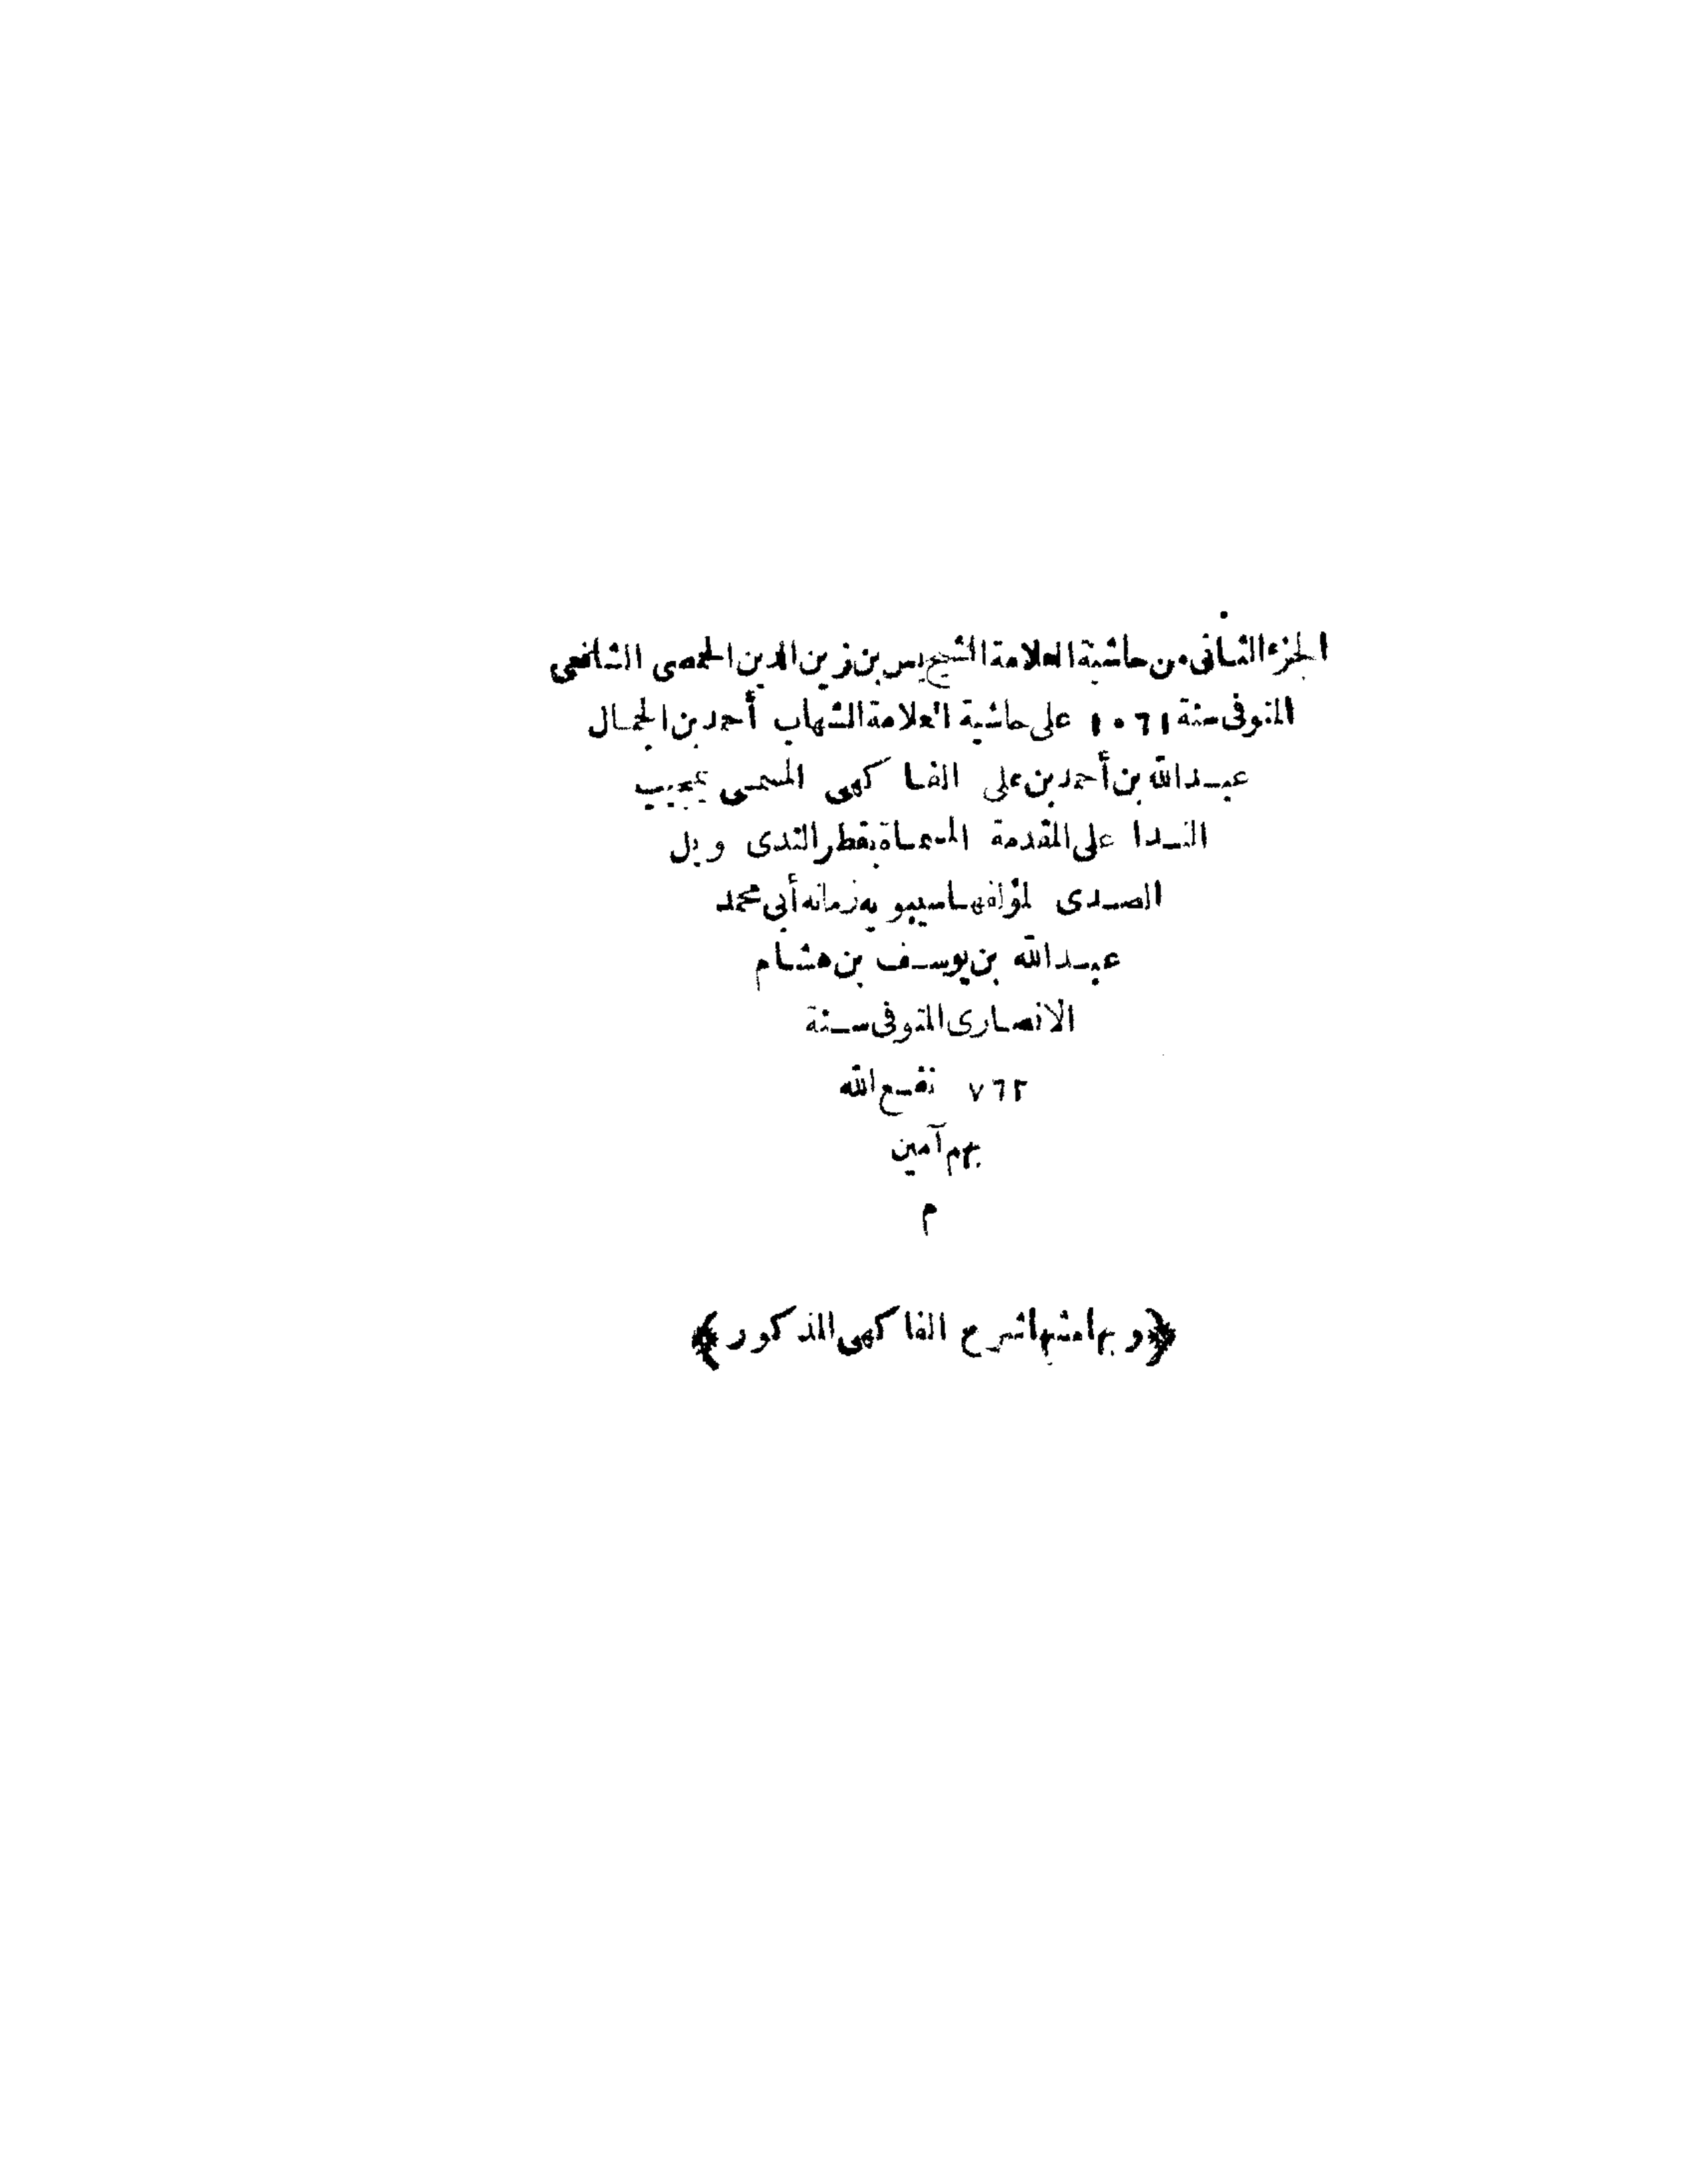 الجزء الثانى من حاشية العلامة الشيخ يس بن زين الدين الحمصى الشافعى
المتوفى سنة ١٠٦١ على حاشية العلامة الشهاب أحمد بن الجمال
عبد الله بن أحمد بن على الفاكهى المسمى بمجيب
الندا على المقدمة المسماة بقطر الندى وبل
الصدى لمؤلفها سيبويه زمانه أبى محمد
عبد الله بن يوسف بن هشام
الانصارى المتوفى سنة
٧٦٢ نفع الله
بهم آمين
م
﴿وبهامشها شرح الفاكهى المذكور﴾